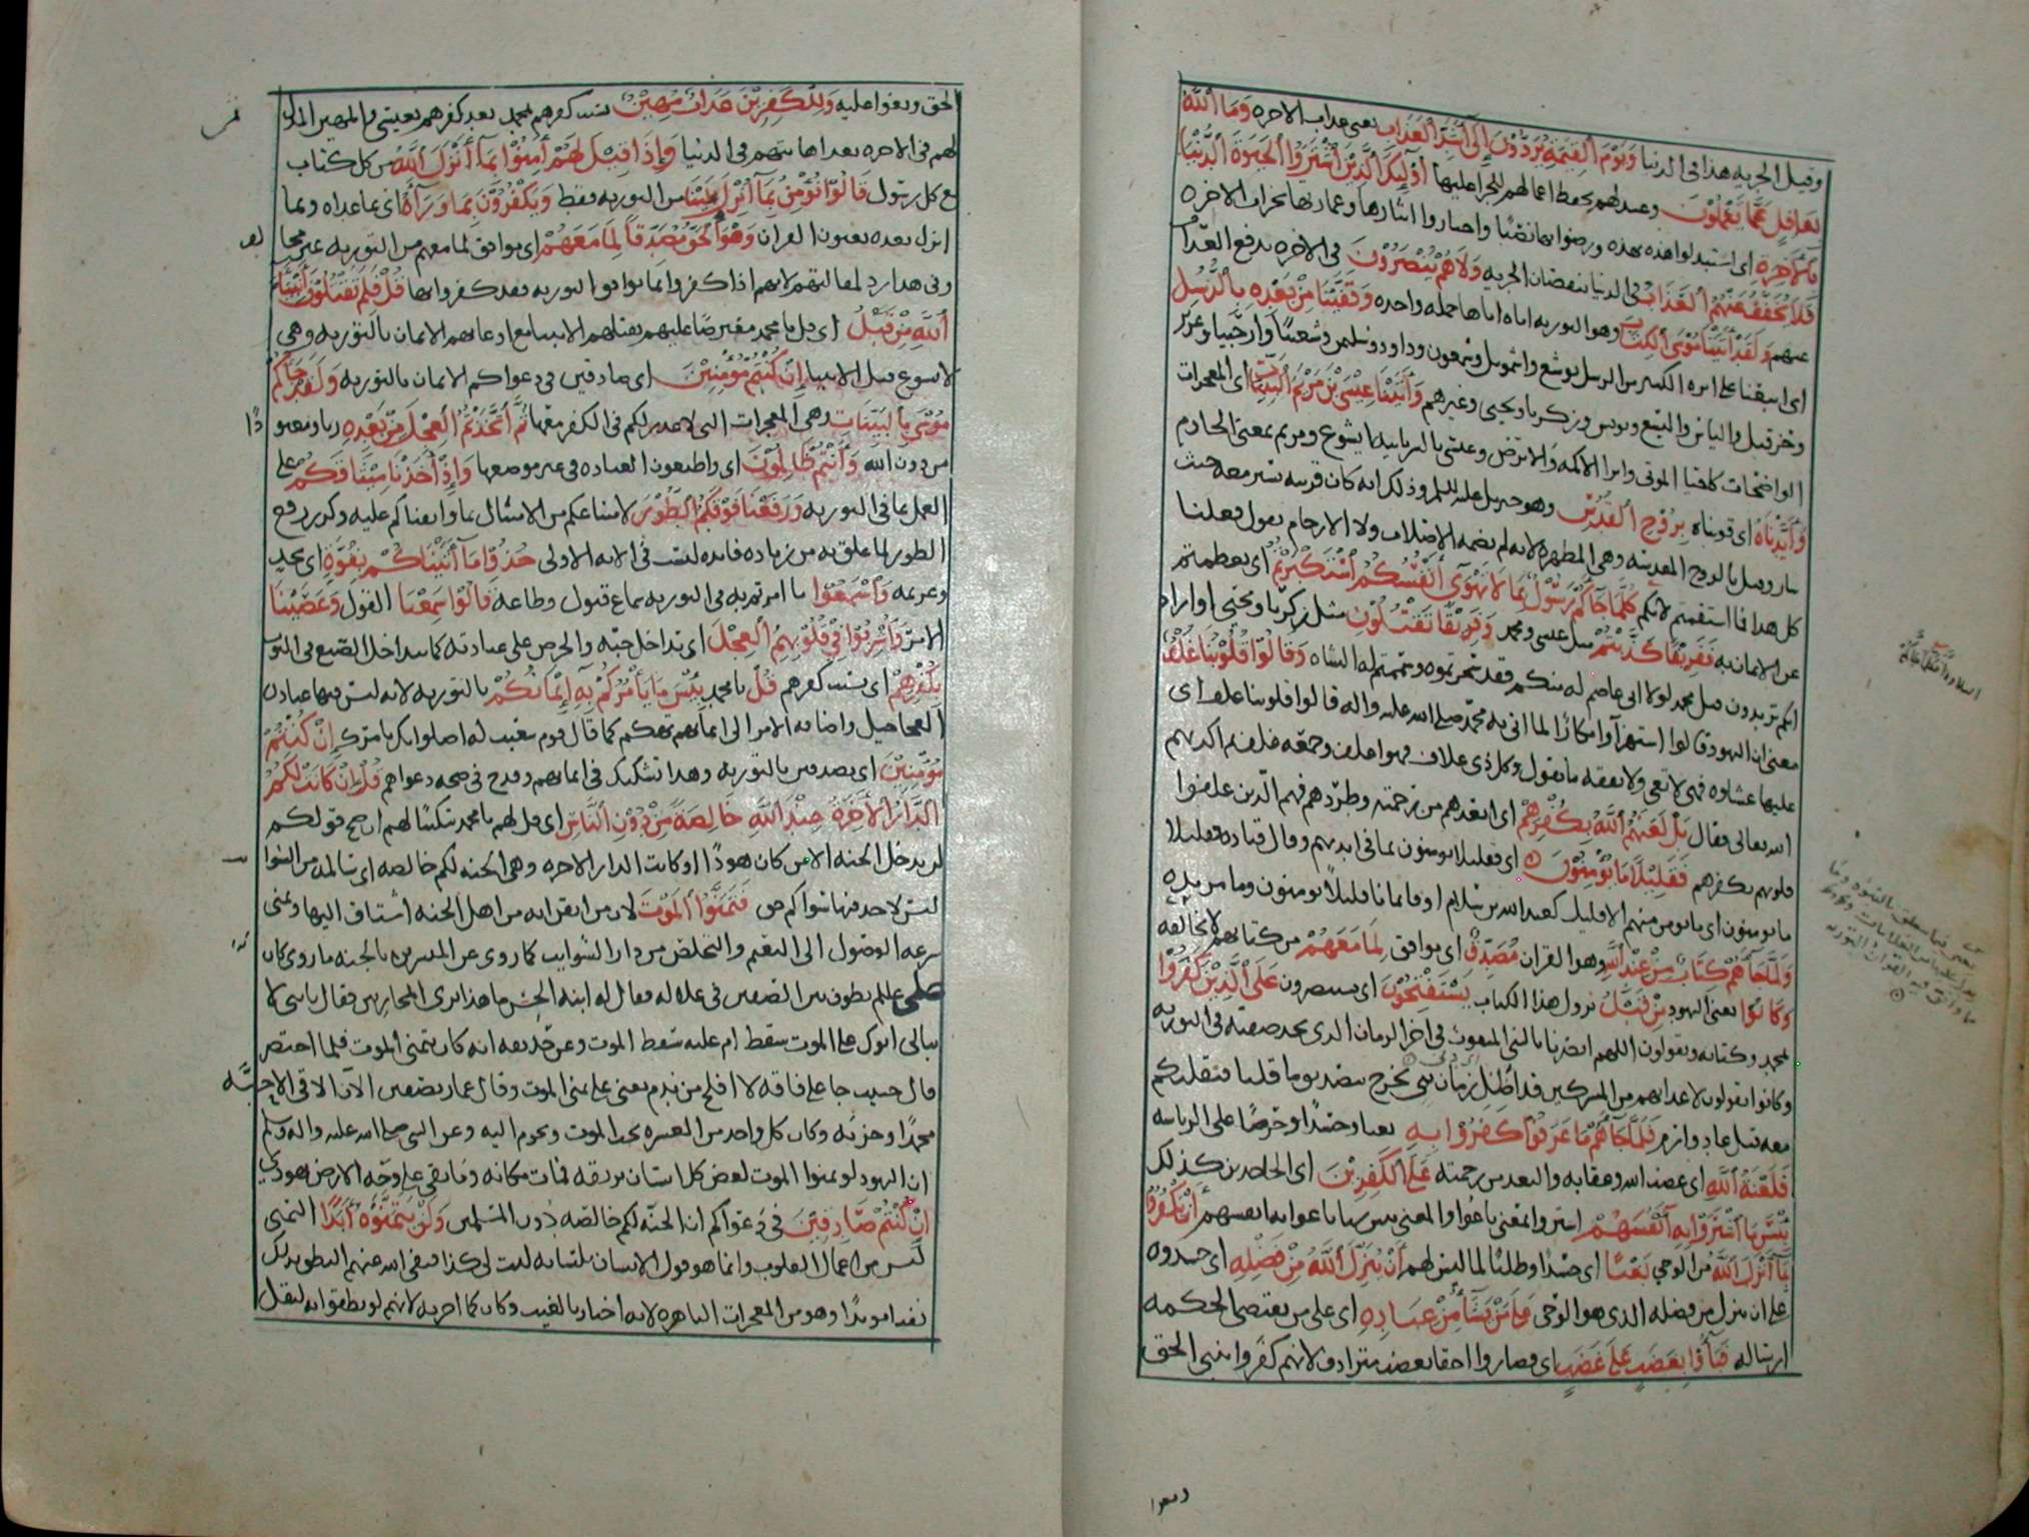 وقيل الجزيه هذا فى الدنيا وَيَوْمَ ٱلْقِيٰمَةِ يُرَدُّوْنَ إِلَى أَشَدِّ ٱلْعَذَابِ يعنى عذاب الاخره وَمَا ٱللَّهُ
بِغَافِلٍ عَمَّا يَعْمَلُوْنَ وعيد لهم بحفظ اعمالهم للجزا عليها أُوْلَٰئِكَ ٱلَّذِيْنَ ٱشْتَرَوُا ٱلْحَيَوٰةَ ٱلدُّنْيَا
بِٱلْآخِرَةِ اى استبدلوا هذه بهذه ورضوا بها ثمنا واختاروا ايثارها وعمارتها بخراب الاخره
فَلَا يُخَفَّفُ عَنْهُمُ ٱلْعَذَابُ فى الدنيا بنقصان الجزيه وَلَا هُمْ يُنْصَرُوْنَ فى الاخره بدفع العذاب
عنهم وَلَقَدْ أٰتَيْنَا مُوْسَى ٱلْكِتَابَ وهو التوريه اتاه اياها جمله واحده وَقَفَّيْنَا مِنْ بَعْدِهِ بِٱلرُّسُلِ
اى اتبعنا على اثره الكثير من الرسل يوشع واشمويل وشمعون وداود وسليمن وشعيا وارحيا وعزير
وحزقيل والياس واليسع ويونس وزكريا ويحيى وغيرهم وَأٰتَيْنَا عِيْسَى بْنَ مَرْيَمَ ٱلْبَيِّنَاتِ اى المعجزات
الواضحات كاحيا الموتى وابرا الاكمه والابرص وعيسى بالسريانيه ايشوع ومريم بمعنى الخادم
وَأَيَّدْنَاهُ اى قويناه بِرُوْحِ ٱلْقُدُسِ وهو جبريل عليه السلم وذلك انه كان قرينه يسير معه حيث
سار وقيل بالروح المقدسه وهى المطهره لانه لم يضمه الاصلاب ولا الارحام يقول فعلنا
كل هذا فما استقمتم لانكم كُلَّمَا جَآءَكُمْ رَسُوْلٌ بِمَا لَا تَهْوَى أَنْفُسُكُمُ ٱسْتَكْبَرْتُمْ اى تعظمتم
عن الايمان به فَفَرِيْقًا كَذَّبْتُمْ مثل عيسى ومحمد وَفَرِيْقًا تَقْتُلُوْنَ مثل زكريا ويحيى او اراد
انكم تريدون قتل محمد لولا انى عاصم له منكم فقد سحرتموه وسممتم له الشاه وَقَالُوْا قُلُوْبُنَا غُلْفٌ
معنى ان اليهود قالوا استهزآ وانكارًا لما اتى به محمد صلى الله عليه واله قالوا قلوبنا غلف اى
عليها غشاوه فهى لا تعى ولا تفقه ما تقول وكل ذى غلاف فهو اغلف وجمعه غلف ثم اكذبهم
الله تعالى فقال بَلْ لَعَنَهُمُ ٱللَّهُ بِكُفْرِهِمْ اى ابعدهم من رحمته وطردهم فهم الذين غلفوا
قلوبهم بكفرهم فَقَلِيْلًا مَا يُؤْمِنُوْنَ اى فقليلا يومنون بما فى ايديهم وقال قتاده فقليلا
ما يومنون اى ما يومن منهم الا قليل كعبد الله بن سلام او فايمانا قليلًا يومنون وما مزيده
وَلَمَّا جَآءَهُمْ كِتَابٌ مِنْ عِنْدِ ٱللَّهِ وهو القران مُصَدِّقٌ اى موافق لِمَا مَعَهُمْ من كتابهم لا يخالفه
وَكَانُوْا يعنى اليهود مِنْ قَبْلُ نزول هذا الكتاب يَسْتَفْتِحُوْنَ اى يستنصرون عَلَى ٱلَّذِيْنَ كَفَرُوْا
بمحمد وكتابه ويقولون اللهم انصرنا بالنبى المبعوث فى اخر الزمان الذى نجد صفته فى التوريه
وكانوا يقولون لاعدائهم من المشركين قد اظل زمان نبى يخرج بتصديق ما قلنا فنقتلكم
معه قتل عاد وارم فَلَمَّا جَآءَهُمْ مَا عَرَفُوْا كَفَرُوْا بِهِ بغيا وحسدًا وحرصًا على الرياسه
فَلَعْنَةُ ٱللَّهِ اى غضب الله وعقابه والبعد من رحمته عَلَى ٱلْكَٰفِرِيْنَ اى الجاحدين كذلك
بِئْسَمَا ٱشْتَرَوْا بِهِ أَنْفُسَهُمْ اشتروا بمعنى باعوا والمعنى بئس شيا باعوا به انفسهم أَنْ يَكْفُرُوْا
بِمَآ أَنْزَلَ ٱللَّهُ من الوحى بَغْيًا اى حسدًا وطلبًا لما ليس لهم أَنْ يُنَزِّلَ ٱللَّهُ مِنْ فَضْلِهِ اى حسدوه
على ان ينزل من فضله الذى هو الوحى عَلَى مَنْ يَشَآءُ مِنْ عِبَادِهِ اى على من يقتضى الحكمه
ارساله فَبَآءُوْا بِغَضَبٍ عَلَى غَضَبٍ اى فصاروا احقا بغضب مترادف لانهم كفروا بنبى الحق
الحق وبغوا عليه وَلِلْكَٰفِرِيْنَ عَذَابٌ مُهِيْنٌ بسبب كفرهم بمحمد بعد كفرهم بعيسى والمهين المذل
لهم فى الاخره بعد اهانتهم فى الدنيا وَإِذَا قِيْلَ لَهُمْ أٰمِنُوْا بِمَآ أَنْزَلَ ٱللَّهُ من كل كتاب
مع كل رسول قَالُوْا نُؤْمِنُ بِمَآ أُنْزِلَ عَلَيْنَا من التوريه فقط وَيَكْفُرُوْنَ بِمَا وَرَآءَهُ اى بما عداه وبما
انزل بعده يعنون القران وَهُوَ ٱلْحَقُّ مُصَدِّقًا لِمَا مَعَهُمْ اى موافق لما معهم من التوريه غير مخالف
وفى هذا رد لمقالتهم لانهم اذا كفروا بما يوافق التوريه فقد كفروا بها قُلْ فَلِمَ تَقْتُلُوْنَ أَنْبِيَآءَ
ٱللَّهِ مِنْ قَبْلُ اى قل يا محمد معترضًا عليهم بقتلهم الانبيا مع ادعائهم الايمان بالتوريه وهى
لا تسوغ قتل الانبيا إِنْ كُنْتُمْ مُؤْمِنِيْنَ اى صادقين فى دعواكم الايمان بالتوريه وَلَقَدْ جَآءَكُمْ
مُوْسَى بِٱلْبَيِّنَاتِ وهى المعجزات التى لا عذر لكم فى الكفر معها ثُمَّ ٱتَّخَذْتُمُ ٱلْعِجْلَ مِنْ بَعْدِهِ ربا ومعبودًا
من دون الله وَأَنْتُمْ ظَالِمُوْنَ اى واضعون العباده فى غير موضعها وَإِذْ أَخَذْنَا مِيْثَاقَكُمْ على
العمل بما فى التوريه وَرَفَعْنَا فَوْقَكُمُ ٱلطُّوْرَ لامتناعكم من الامتثال بما واثقناكم عليه وكرر رفع
الطور لما علق به من زياده فايده ليست فى الايه الاولى خُذُوْا مَآ أٰتَيْنَاكُمْ بِقُوَّةٍ اى بجد
وعزيمه وَٱسْمَعُوْا ما امرتم به فى التوريه سماع قبول وطاعه قَالُوْا سَمِعْنَا القول وَعَصَيْنَا
الامر وَأُشْرِبُوْا فِيْ قُلُوْبِهِمُ ٱلْعِجْلَ اى تداخل حبه والحرص على عبادته كما يتداخل الصبغ فى الثوب
بِكُفْرِهِمْ اى بسبب كفرهم قُلْ يا محمد بِئْسَ مَا يَأْمُرُكُمْ بِهِ إِيْمَانُكُمْ بالتوريه لانه ليس فيها عباده
العجاجيل واضافه الامر الى ايمانهم تهكم كما قال قوم شعيب له اصلواتك تامرك إِنْ كُنْتُمْ
مُؤْمِنِيْنَ اى بصدقين بالتوريه وهذا تشكيك فى ايمانهم وقدح فى صحه دعواهم قُلْ إِنْ كَانَتْ لَكُمُ
ٱلدَّارُ ٱلْأٰخِرَةُ عِنْدَ ٱللَّهِ خَالِصَةً مِنْ دُوْنِ ٱلنَّاسِ اى قل لهم يا محمد تبكيتًا لهم ان صح قولكم
لن يدخل الجنه الا من كان هودًا او كانت الدار الاخره وهى الجنه لكم خالصه اى سالمه من الشوائب
ليس لاحد فيها سواكم حق فَتَمَنَّوُا ٱلْمَوْتَ لان من ايقن انه من اهل الجنه اشتاق اليها وتمنى
سرعه الوصول الى النعيم والتخلص من دار الشوايب كما روى عن المبشرين بالجنه ما روى كان
على علم يطوف بين الصفين فى غلاله فقال له ابنه الحسن ما هذا بزى المحاربين فقال يابنى لا
يبالى ابوك على الموت سقط ام عليه سقط الموت وعن حذيفه انه كان يتمنى الموت فلما احتضر
قال حبيب جا على فاقه لا افلح من ندم يعنى على تمنى الموت وقال عمار بصفين الآن الاقى الاحبه
محمدًا وحزبه وكان كل واحد من العشره يحب الموت ويحن اليه وعن النبى صلى الله عليه واله وسلم
ان اليهود لو تمنوا الموت لغص كل انسان بريقه فمات مكانه وما بقى على وجه الارض يهودى
إِنْ كُنْتُمْ صَادِقِيْنَ فى دعواكم ان الجنه لكم خالصه دون المسلمين وَلَنْ يَتَمَنَّوْهُ أَبَدًا التمنى
ليس من اعمال القلوب وانما هو قول الانسان بلسانه ليت لى كذا فنفى الله عنهم النطق بذلك
نفيا موبدًا وهو من المعجزات الباهره لانه اخبار بالغيب وكان كما اخبر به لانهم لو نطقوا به لنقل